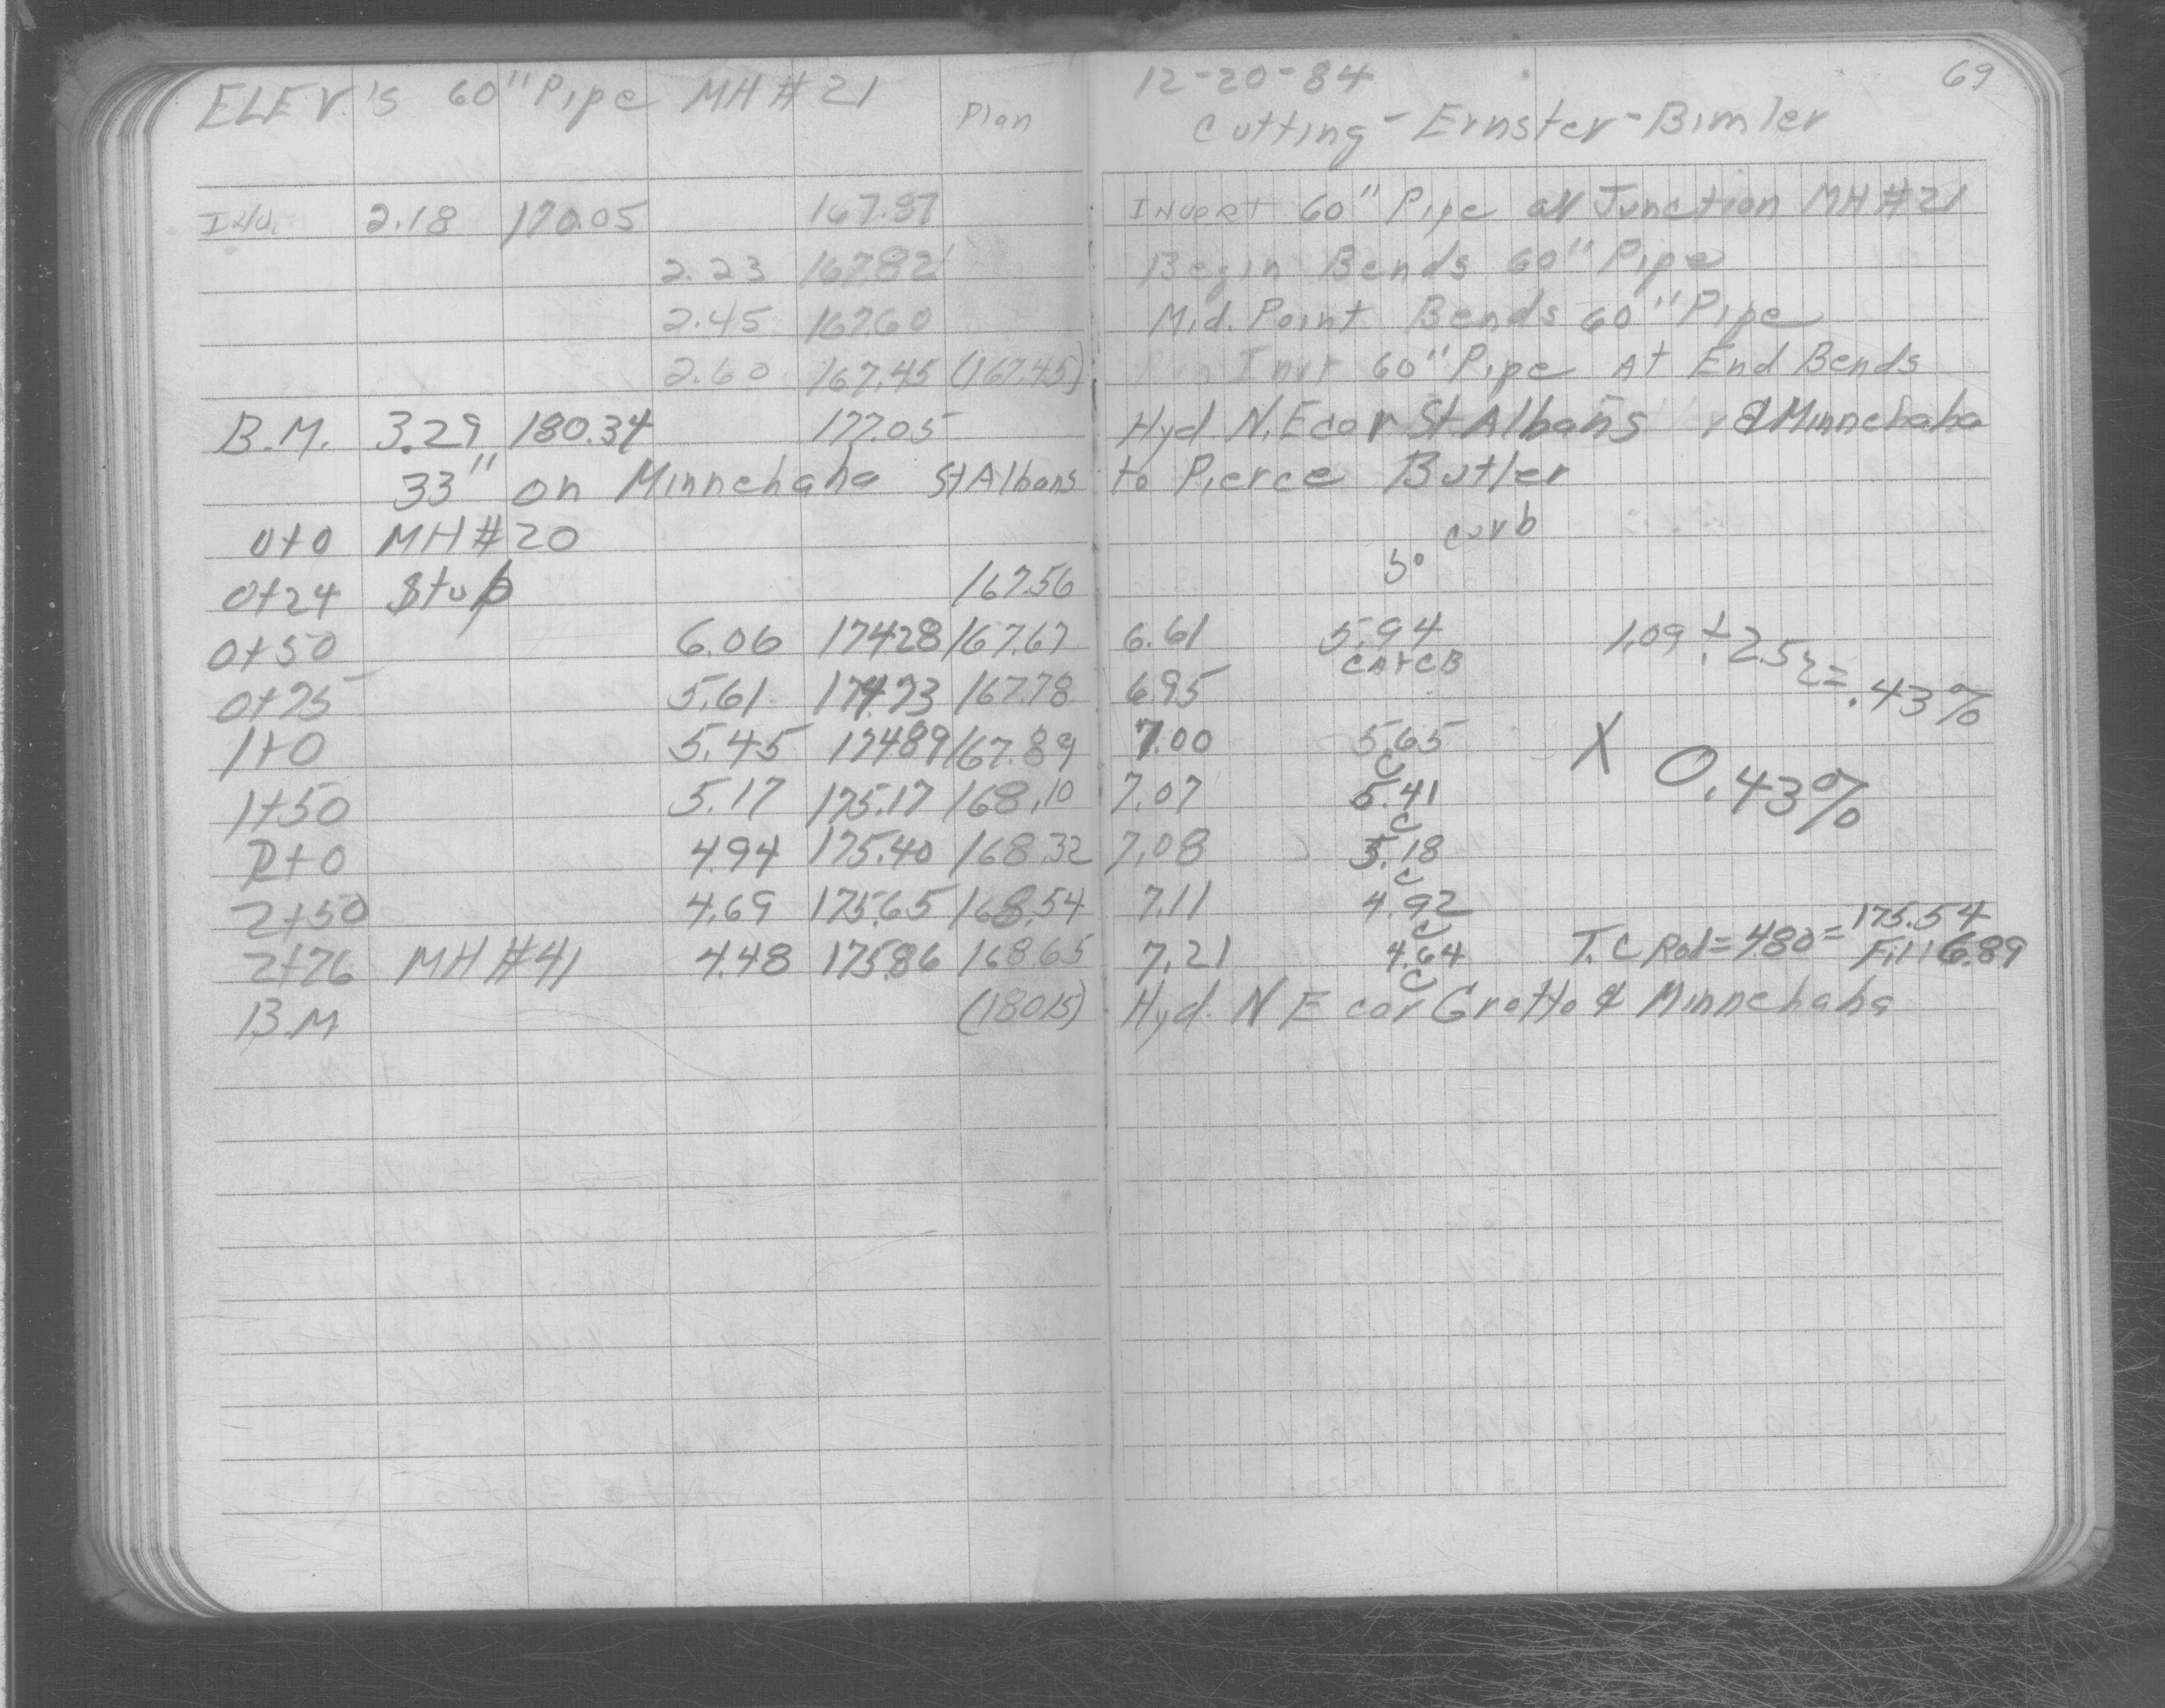 ELEV.'s 60" Pipe MH #21 Plan
12-20-84 69
Cutting - Ernster - Bimler
Inv. 2.18 170.05 167.87 Invert 60" Pipe at Junction MH #21
2.23 167.82 Begin Bends 60" Pipe
2.45 167.60 Mid. Point Bends 60" Pipe
2.60 167.45 (167.45) Invt 60" Pipe At End Bends
B.M. 3.29 180.34 177.05 Hyd. N.E cor St. Albans & Minnehaha
33" on Minnehaha St Albans to Pierce Butler
0+0 MH #20 curb
0+24 Stub 167.56 5°
0+50 6.06 174.28 167.67 6.61 5.94 1.09 ÷ 252 = .43%
CAYCB
0+75 5.61 174.73 167.78 6.95
1+0 5.45 174.89 167.89 7.00 5.65 X 0.43%
C
1+50 5.17 175.17 168.10 7.07 5.41
C
2+0 4.94 175.40 168.32 7.08 5.18
C
2+50 4.69 175.65 168.54 7.11 4.92
C
2+76 MH #41 4.48 175.86 168.65 7.21 4.64 T.C Rod = 480 = 175.54
C
Fill 6.89
B.M (180.15) Hyd. N E cor Grotto & Minnehaha